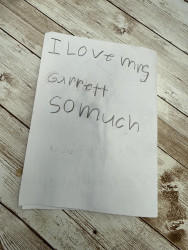 I Love mrs
Garrett
somuch